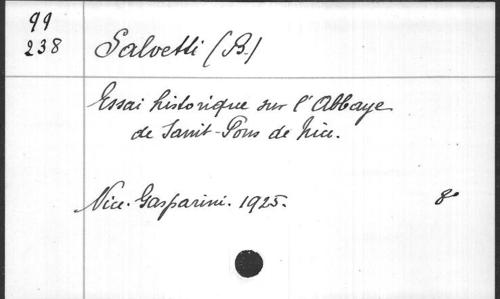 99
238 Salvetti (B.)
Essai historique sur l'Abbaye
de Saint-Pons de Nice.
Nice. Gasparini. 1925. 8°